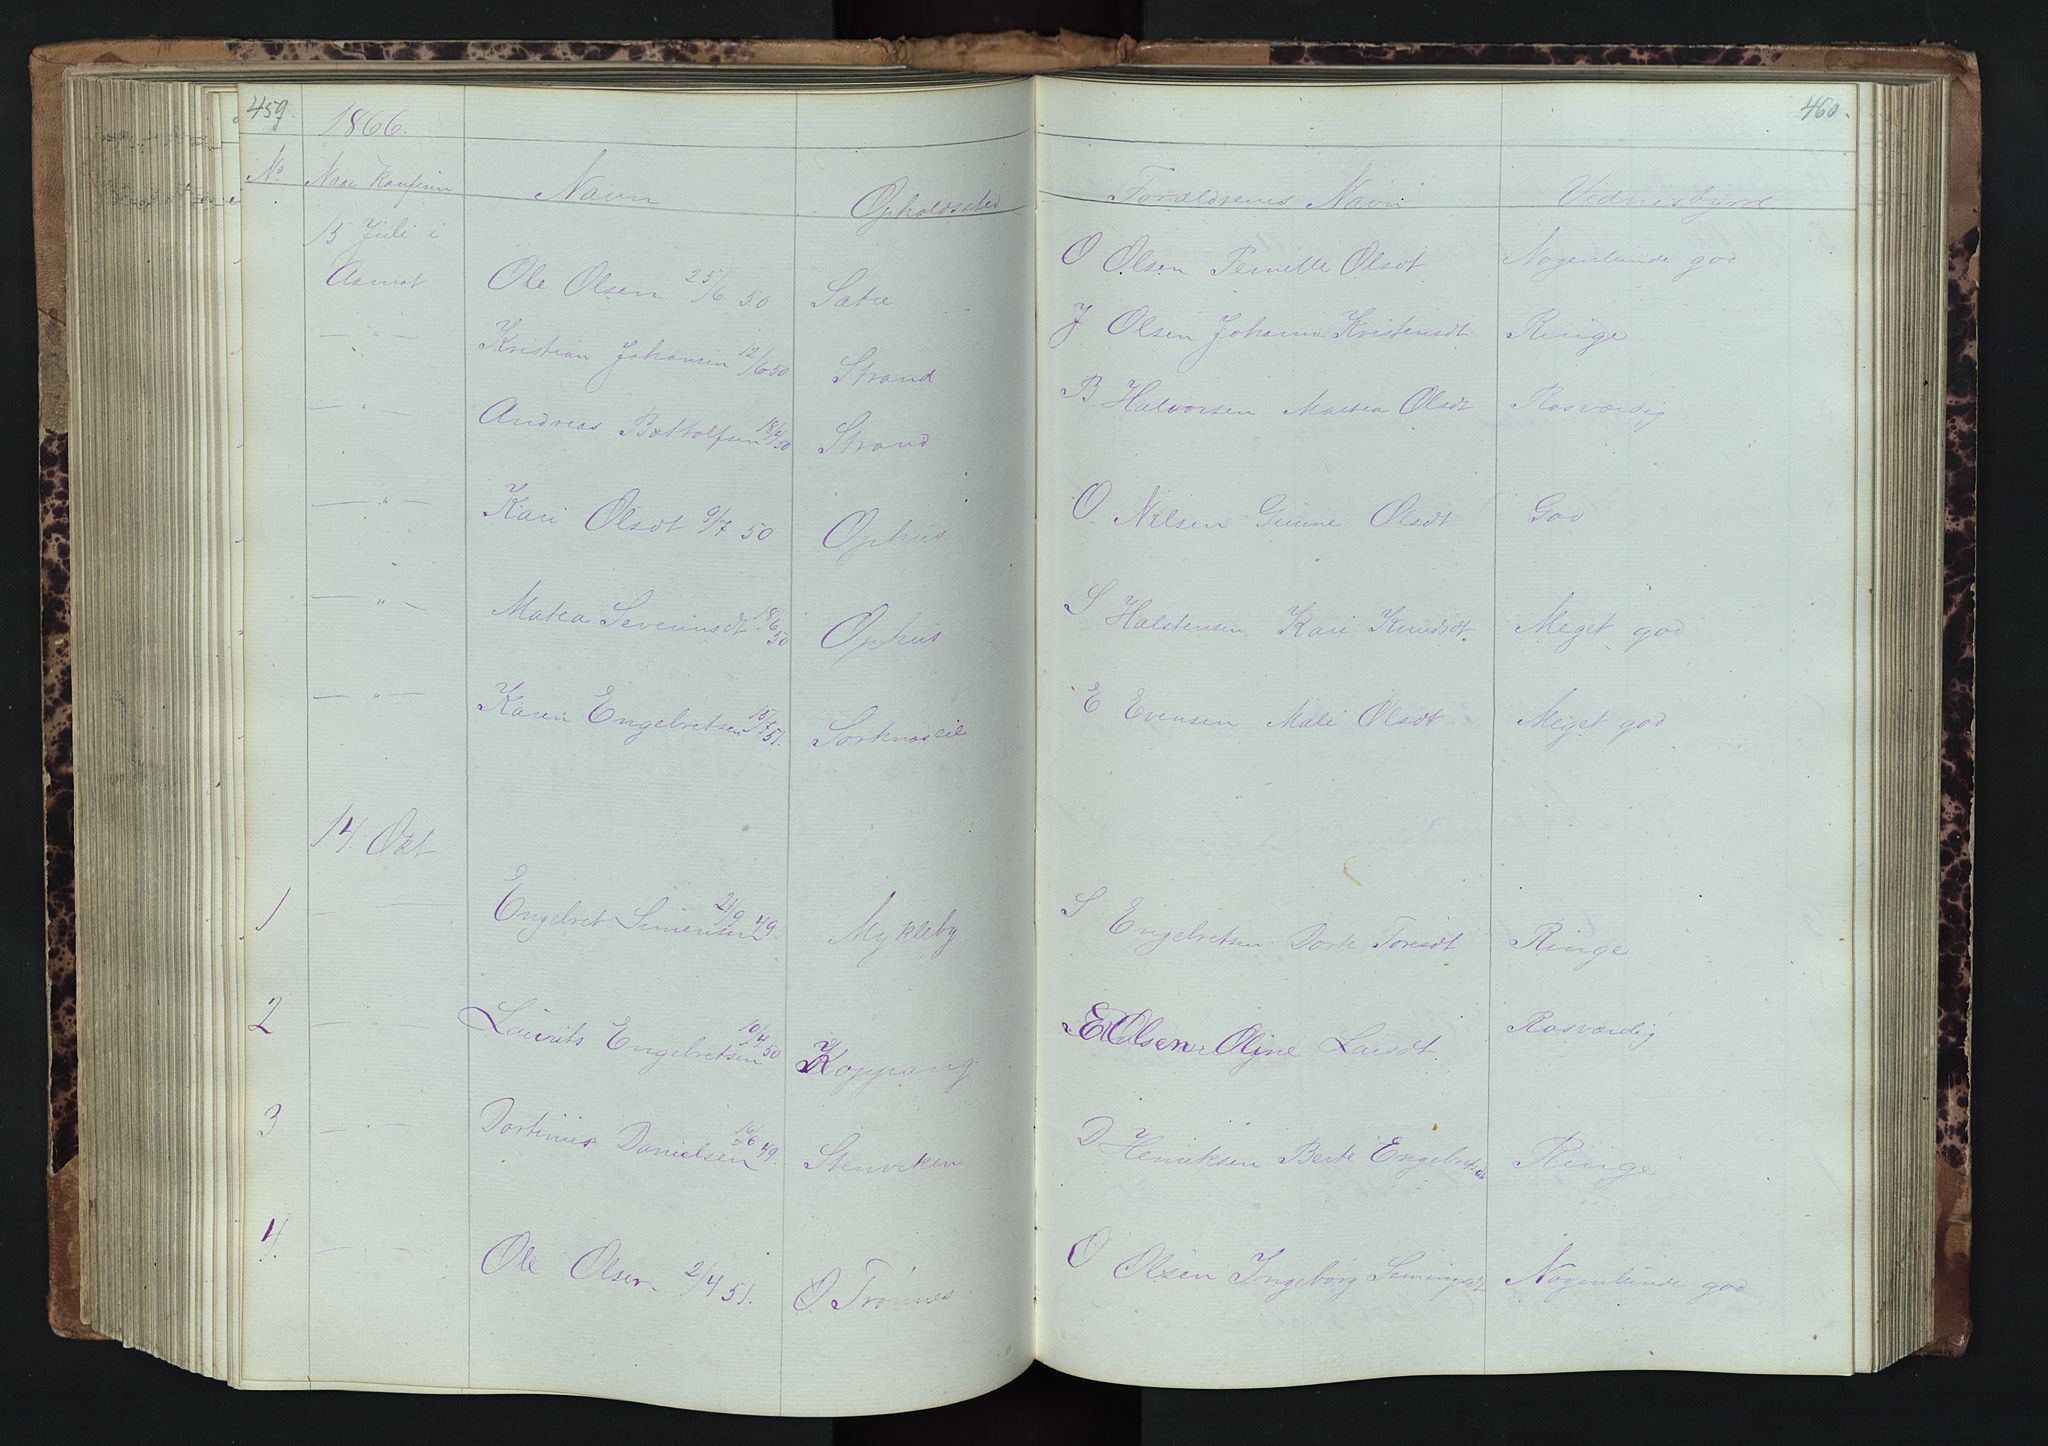 459.
1866.
No Naar konfirm Navn Opholdssted
15 Juli i
Aamot Ole Olsen 25/6 50 Sætre
— " — Kristian Johansen 12/6 50 Strand
— " — Andreas Bottolfsen 18/ 50 Strand
— " — Kari Olsdt 9/7 50 Ophus
— " — Matea Severinsdt 18/6 50 Ophus
— " — Karen Engebretsen 15/ 51. Sorknæseie
14. Okt
1 — — Engebret Simensen 24/9 49. Mykleby
2 — Laurits Engebretsen 10/4 50 Koppang
3 — . — Dortinus Danielsen 16/6 49. Stenviken
4. — — Ole Olsen 2/4 51. O. Trønnes
460.
Forældrenes Navn Vidnesbyrd
O Olsen Pernille Olsdt Nogenlunde god
J Olsen Johanne Kristensdt Ringe
B. Halvorsen Matea Olsdt Rosværdig
O Nilsen Gunne Olsdt God
S Halstensen Kari Knudsdt Meget god
E Evensen Mali Olsdt Meget god
S Engebretsen Dorte Toresdt Ringe
E Olsen Oline Larsdt Rosværdig
D Henriksen Berte Engebretsdt Ringe
O Olsen Ingeborg Semingsdt Nogenlunde god